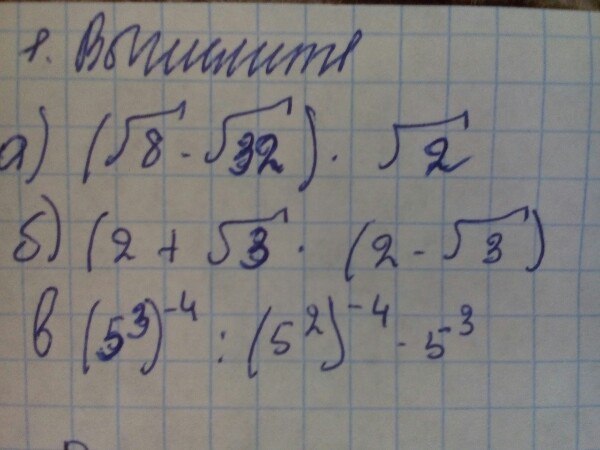 1. Вычислите
а) (√8 - √32) · √2
б) (2 + √3 · (2 - √3)
в (5³)⁻⁴ : (5²)⁻⁴ · 5³